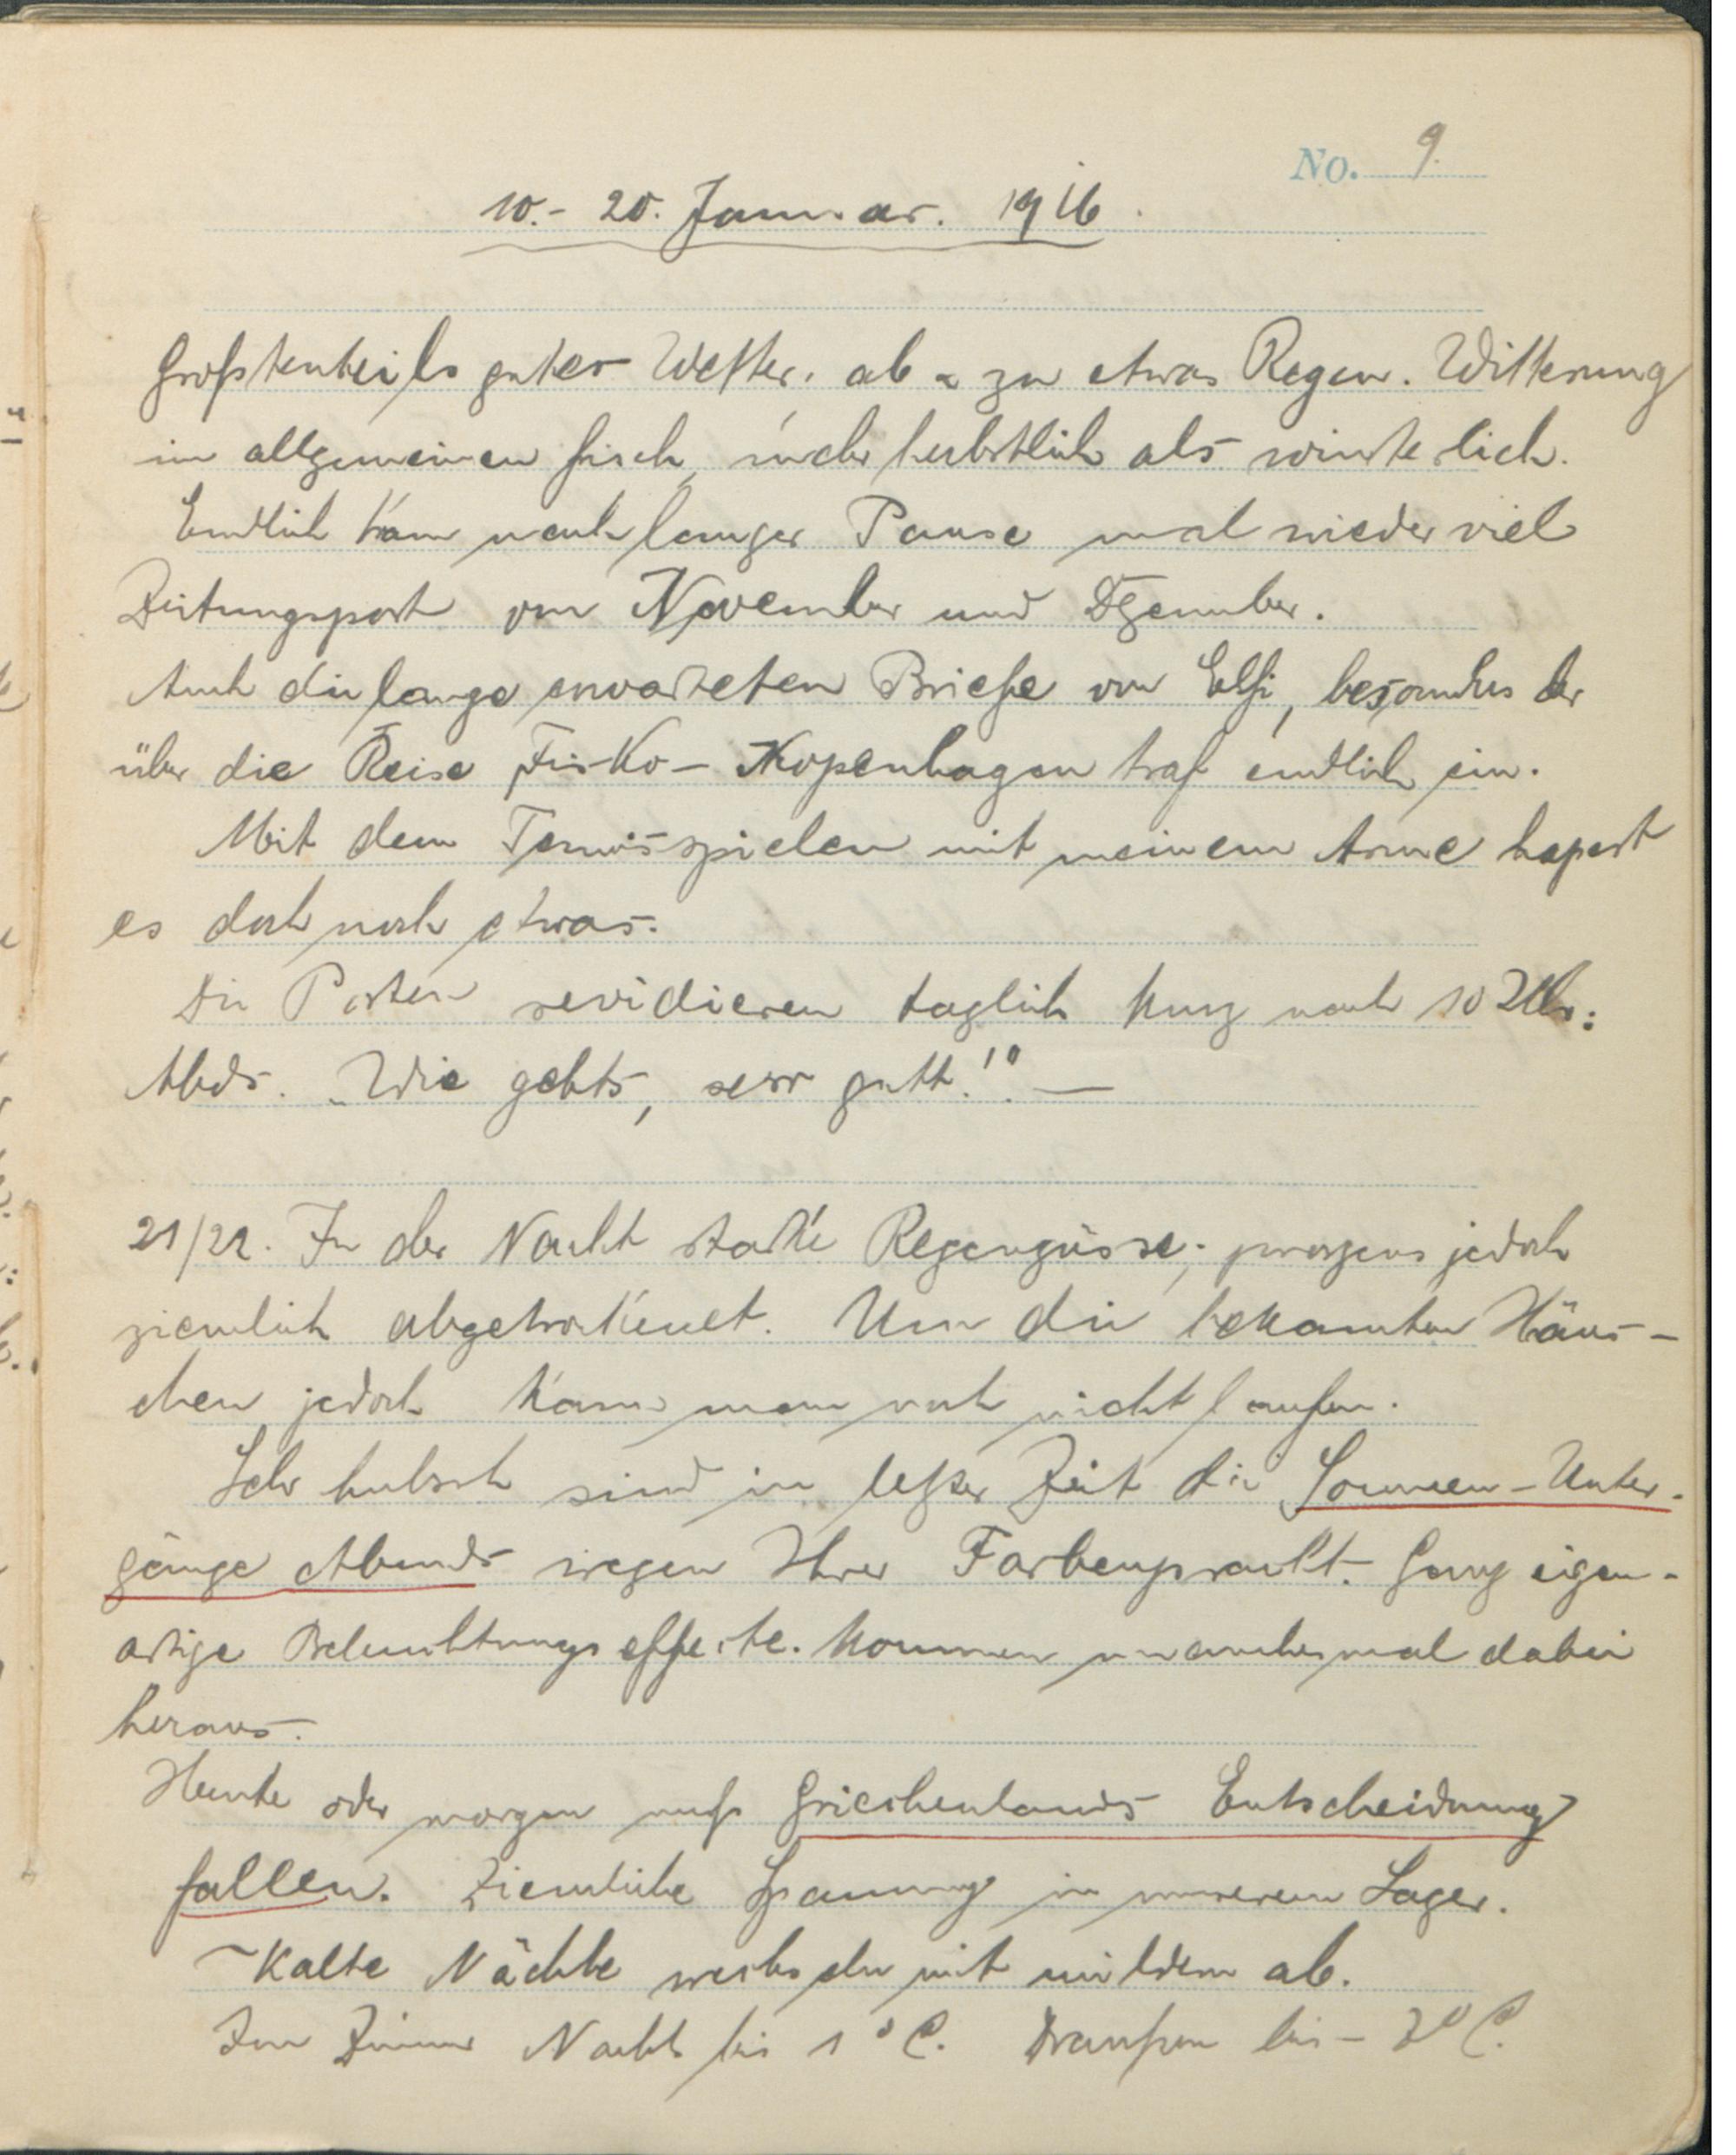 No. 9.
10.- 20. Januar. 1916.
Großtenteils gutes Wetter, ab u zu etwas Regen. Witterung
im allgemeinen frisch, mehr herbstlich als winterlich.
Endlich kam nach langer Pause mal wieder viel
Zeitungspost von November und Dezember.
Auch die lange erwarteten Briefe von Elsi, besonders der
über die Reise Frisko - Kopenhagen traf endlich ein.
Mit dem Tennisspielen mit meinem Arme hapert
es doch noch etwas.
Die Posten revidieren taglich kurz nach 10 Uhr:
Abds. „Wie gehts, serr gutt!" —
21/22. In der Nacht starke Regengüsse; morgens jedoch
ziemlich abgetrocknet. Um die bekannten Häus-
chen jedoch kann man noch nicht laufen.
Sehr hubsch sind in letzter Zeit die Sonnen-Unter-
gänge Abends wegen Ihrer Farbenpracht. Ganz eigen-
artige Beleuchtungseffecte. kommen manchesmal dabei
heraus.
Heute oder morgen muß Griechenlands Entscheidung
fallen. Ziemliche Spannung in unserem Lager.
Kalte Nächte wechseln mit mildem ab.
Im Zimmer Nachts bis 1° C. Draußen bis - 3° C.